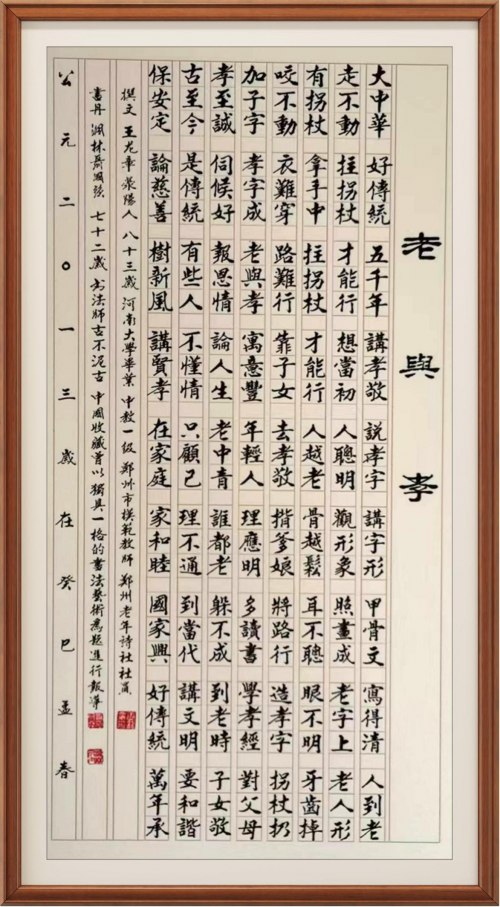 老與孝
大中華 好傳統 五千年 講孝敬 說孝字 講字形 甲骨文 寫得清 人到老
走不動 拄拐杖 才能行 想當初 人聰明 觀形象 照畫成 老字上 老人形
有拐杖 拿手中 拄拐杖 才能行 人越老 骨越鬆 耳不聰 眼不明 牙齒掉
咬不動 衣難穿 路難行 靠子女 去孝敬 揹爹娘 將路行 造孝字 拐杖扔
加子字 孝字成 老與孝 寓意豐 年輕人 理應明 多讀書 學孝經 對父母
孝至誠 伺候好 報恩情 論人生 老中青 誰都老 躲不成 到老時 子女敬
古至今 是傳統 有些人 不懂情 只顧己 理不通 到當代 講文明 要和諧
保安定 論慈善 樹新風 講賢孝 在家庭 家和睦 國家興 好傳統 萬年承
撰文 王龙章 荥陽人 八十三歲 河南大學畢業 中教一级 鄭州市模範教師 鄭州老年诗社社員
書丹 七十二歲 书法师古不泥古 中國收藏曾以獨具一格的書法藝術為题進行報導
公元二〇一三歲在癸巳孟春